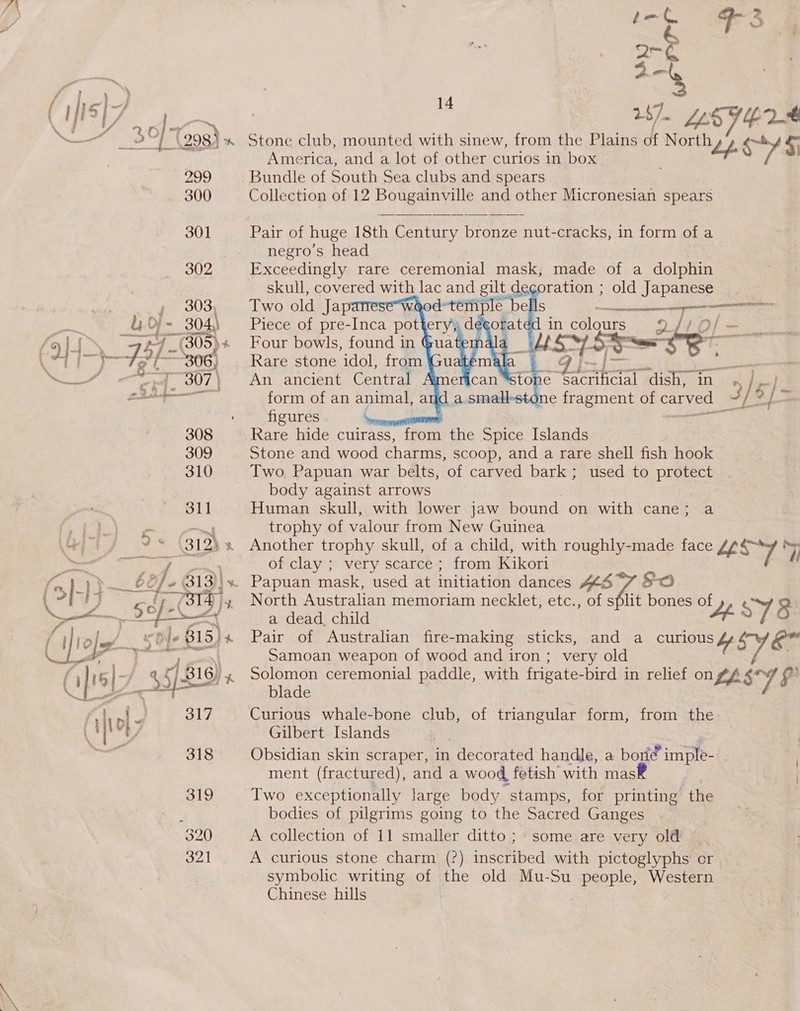 14
(298) x Stone club, mounted with sinew, from the Plains of North
America, and a lot of other curios in box
299 Bundle of South Sea clubs and spears
300 Collection of 12 Bougainville and other Micronesian spears
301 Pair of huge 18th Century bronze nut-cracks, in form of a
negro's head
302 Exceedingly rare ceremonial mask, made of a dolphin
skull, covered with lac and gilt decoration ; old Japanese
303 Two old Japanese wood temple bells
304 Piece of pre-Inca pottery, decorated in colours
(305) x Four bowls, found in Guatemala
306 Rare stone idol, from Guatemala
307 An ancient Central American stone sacrificial dish, in
form of an animal, and a small stone fragment of carved
figures
308 Rare hide cuirass, from the Spice Islands
309 Stone and wood charms, scoop, and a rare shell fish hook
310 Two Papuan war belts, of carved bark ; used to protect
body against arrows
311 Human skull, with lower jaw bound on with cane; a
trophy of valour from New Guinea
(312) x Another trophy skull, of a child, with roughly-made face
of clay ; very scarce ; from Kikori
(313) x Papuan mask, used at initiation dances
(314) x North Australian memoriam necklet, etc., of split bones of
a dead child
(315) x Pair of Australian fire-making sticks, and a curious
Samoan weapon of wood and iron ; very old
(316) x Solomon ceremonial paddle, with frigate-bird in relief on
blade
317 Curious whale-bone club, of triangular form, from the
Gilbert Islands
318 Obsidian skin scraper, in decorated handle, a bone imple-
ment (fractured), and a wood fetish with mask
319 Two exceptionally large body stamps, for printing the
bodies of pilgrims going to the Sacred Ganges
320 A collection of 11 smaller ditto ; some are very old
321 A curious stone charm (?) inscribed with pictoglyphs or
symbolic writing of the old Mu-Su people, Western
Chinese hills